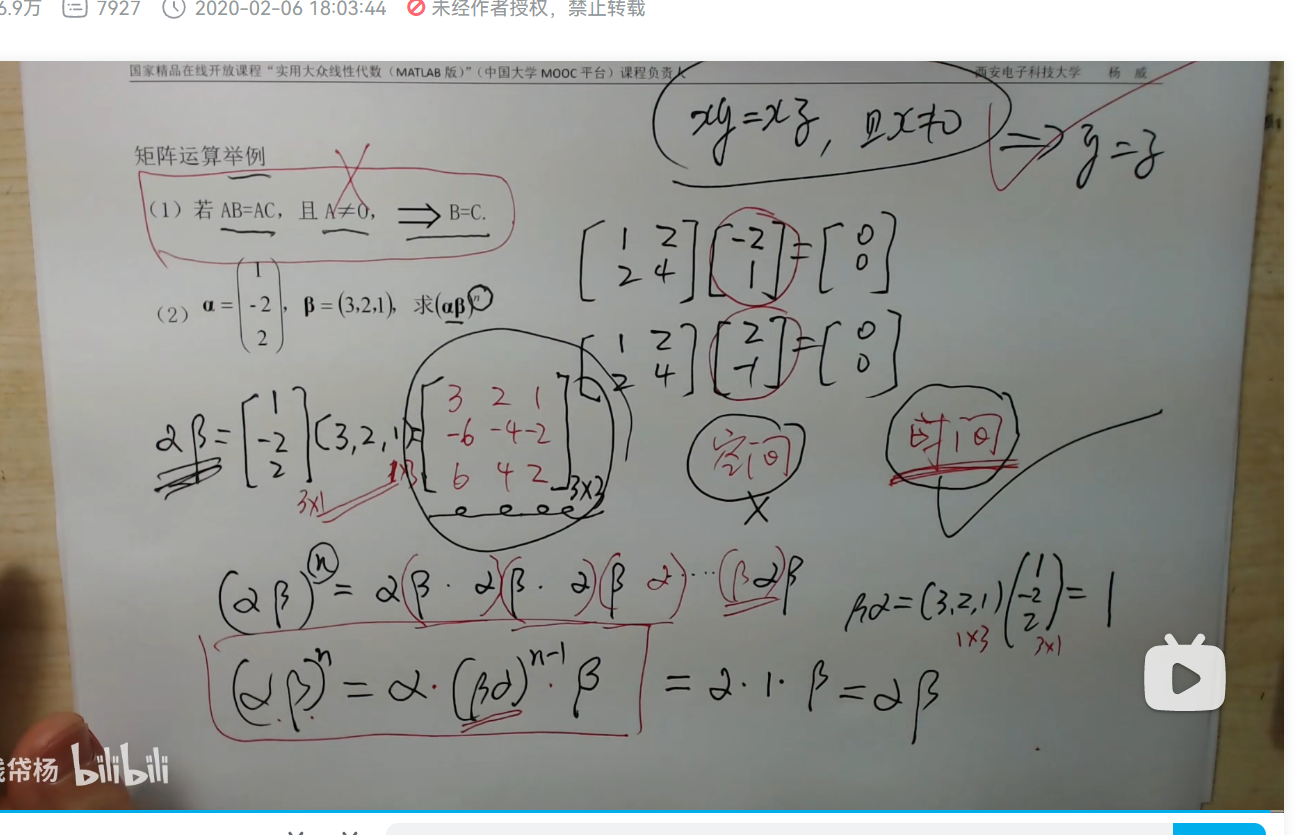 6.9万 7927 2020-02-06 18:03:44 未经作者授权，禁止转载
国家精品在线开放课程“实用大众线性代数（MATLAB 版）”（中国大学 MOOC 平台）课程负责人 西安电子科技大学 杨 威
xy=xz, 且x≠0 ⟹ y=z
矩阵运算举例
（1）若 AB=AC，且 A≠0， ⟹ B=C.
[1 2; 2 4][-2; 1]=[0; 0]
（2）α = (1; -2; 2)，β = (3,2,1)，求(αβ)ⁿ
[1 2; 2 4][2; -1]=[0; 0]
αβ=[1; -2; 2](3,2,1)=[3 2 1; -6 -4 -2; 6 4 2]3×3
3×1 1×3
空间 时间
×
(αβ)ⁿ= α(β·α)(β·α)(β α)···(βα)β
βα=(3,2,1)(1; -2; 2)=1
1×3 3×1
(αβ)ⁿ = α·(βα)ⁿ⁻¹·β = α·1·β=αβ
杨 bilibili